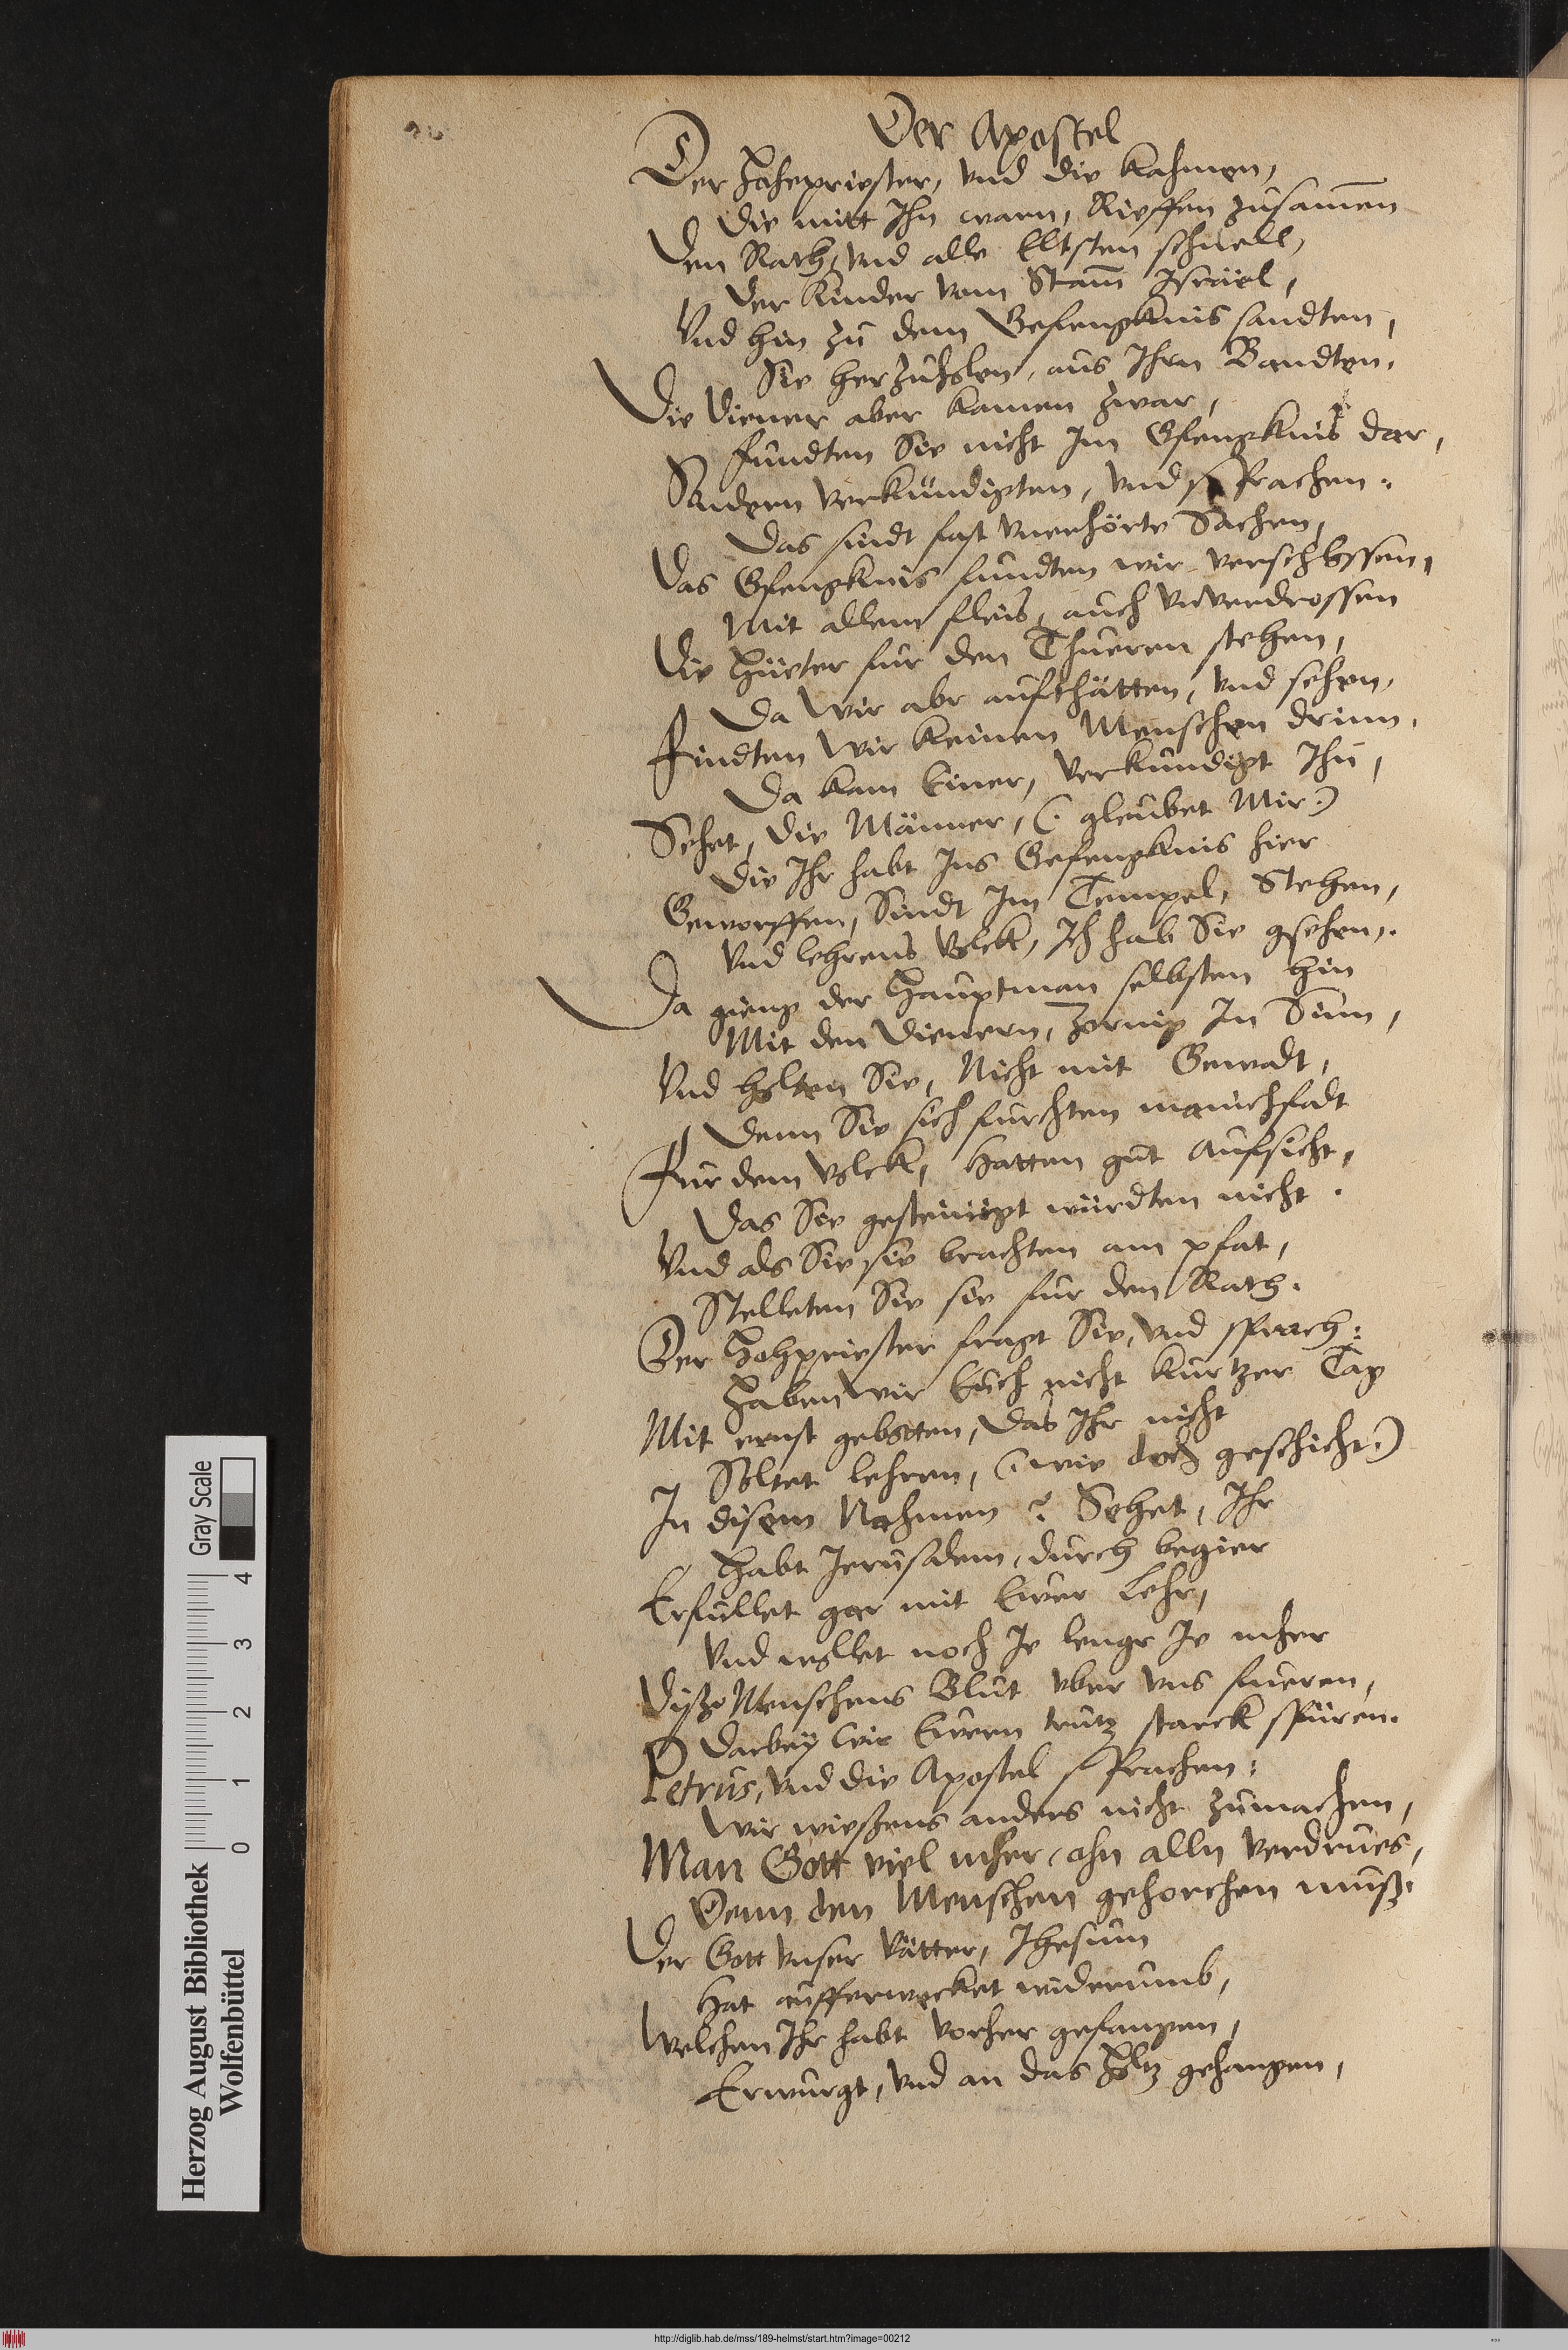 Der Apostel
Der Hohepriester, vnd die kahmen,
Die mitt Ihn warn, Rieffen zusamen
Den Rath, vnd alle Eltsten schnell,
Der Kinder vom Stam Israel,
Vnd hin zu dem Gefengknis sandten,
Sie herzuholen, aus Ihrn Bandten.
Die Diener aber kamen zwar,
fundten Sie nicht Im Gfengknis dar,
Sondern verkündigten, vnd sprachen:
Das sindt fast vnerhörte Sachen,
Das Gfengknis fundten wir verschlossen,
Mit allem fleis, auch vnverdrossen
Die Hüeter für den Thueren stehen,
Da Wir abr aufthätten, vnd sehen,
Findten Wir keinen Menschen drinn.
Da kam Einer, verkundigt Ihn,
Sehet, die Männer, (: gleubet Mir:)
Die Ihr habt Ins Gefengknis hier
Geworffen, Sindt Im Tempel, Stehen,
Vnd lehrens Volck, Ich hab Sie gsehen.
Da gieng der Hauptman selbsten hin
Mit den Dienern, zornig In Sinn,
Vnd holten Sie, Nicht mit Gewalt,
Denn Sie sich furchten manichfalt
Für dem Volck, hatten gut aufsicht,
Das Sie gesteiniget würdten nicht.
Vnd als Sie sie brachten am pfat,
Stelleten Sie sie für den Rath.
Der Hohpriester fragt Sie, vnd sprach:
Haben Wir Euch nicht kurtzer Tag
Mit ernst gebotten, das Ihr nicht
Soltet lehren, (: wie doch geschicht:)
In disem Nahmen? Sehet, Ihr
Habt Jerusalem, durch begier
Erfüllet gar mit Ewer Lehr,
Vnd wollet noch Je lengr Je mher
Dises Menschens Blut vber vns fueren,
Darbey Wir Ewern trutz starck spüren.
Petrus, vnd die Apostel sprachen:
Wir wiessens anders nicht zumachen,
Man Gott viel mher, ohn alln verdrues,
Denn den Menschen gehorchen muß.
Der Gott vnser Vätter, Jhesum
Hat aufferwecket widerumb,
Welchen Ihr habt vorher gefangen,
Erwurgt, vnd an das Holtz gehangen,
Herzog August Bibliothek
Wolfenbüttel
0 1 2 3 4
Gray Scale
http://diglib.hab.de/mss/189-helmst/start.htm?image=00212